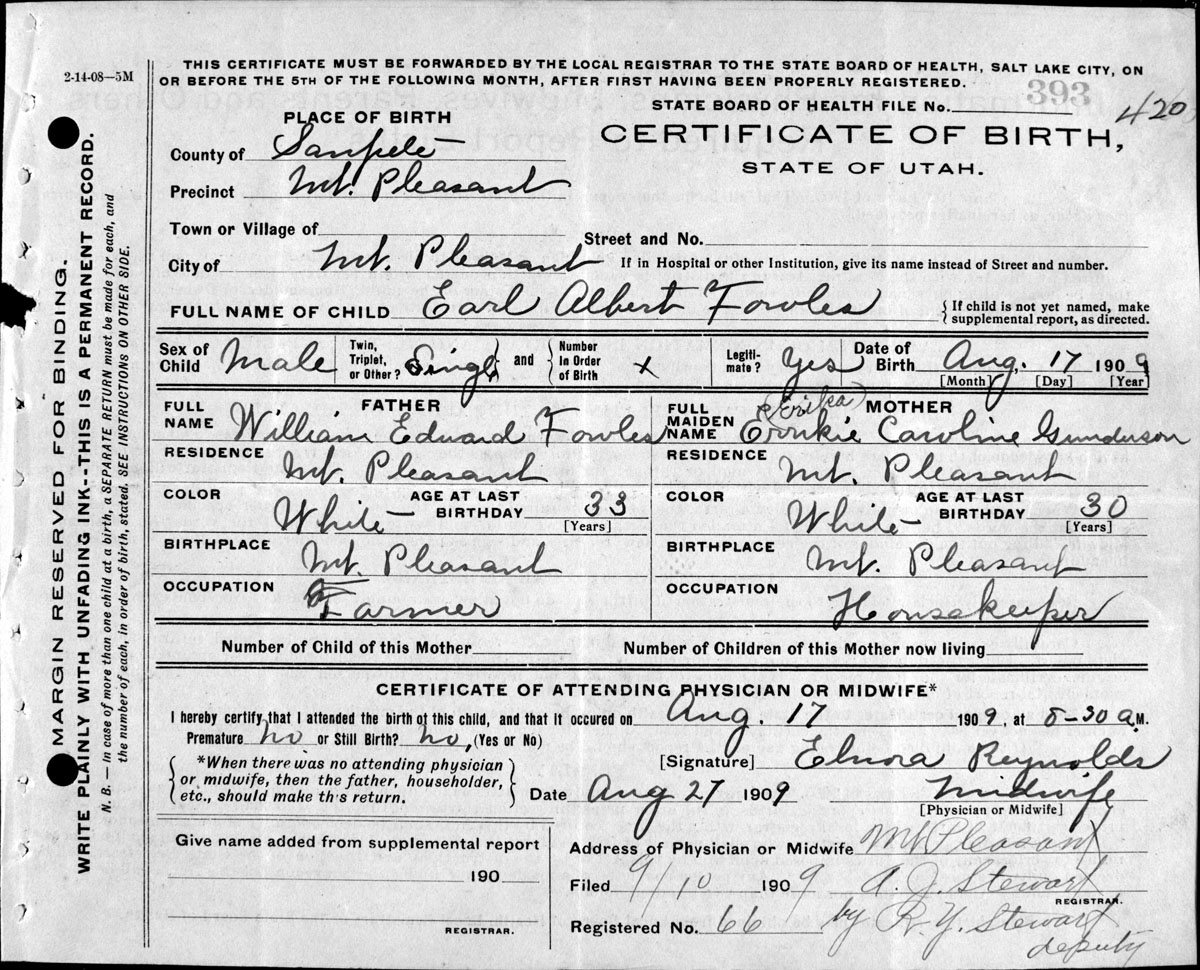 2-14-08—5M
THIS CERTIFICATE MUST BE FORWARDED BY THE LOCAL REGISTRAR TO THE STATE BOARD OF HEALTH, SALT LAKE CITY, ON
OR BEFORE THE 5TH OF THE FOLLOWING MONTH, AFTER FIRST HAVING BEEN PROPERLY REGISTERED.
STATE BOARD OF HEALTH FILE No. 393 420
PLACE OF BIRTH
CERTIFICATE OF BIRTH,
STATE OF UTAH.
County of Sanpete
Precinct Mt. Pleasant
Town or Village of
Street and No.
City of Mt. Pleasant If in Hospital or other Institution, give its name instead of Street and number.
FULL NAME OF CHILD Earl Albert Fowles { If child is not yet named, make supplemental report, as directed.
Sex of Child Male Twin, Triplet, or Other? Single and Number in Order of Birth x Legiti-mate? Yes Date of Birth Aug. 17 1909
[Month] [Day] [Year]
FATHER
MOTHER
FULL NAME William Edward Fowles
FULL MAIDEN NAME (Erika) Caroline Gunderson
RESIDENCE Mt. Pleasant
RESIDENCE Mt. Pleasant
COLOR White AGE AT LAST BIRTHDAY 33 [Years]
COLOR White AGE AT LAST BIRTHDAY 30 [Years]
BIRTHPLACE Mt. Pleasant
BIRTHPLACE Mt. Pleasant
OCCUPATION Farmer
OCCUPATION Housekeeper
Number of Child of this Mother
Number of Children of this Mother now living
CERTIFICATE OF ATTENDING PHYSICIAN OR MIDWIFE*
I hereby certify that I attended the birth of this child, and that it occured on Aug. 17 1909, at 8-30 a.M.
Premature No or Still Birth? No, (Yes or No)
*When there was no attending physician
or midwife, then the father, householder,
etc., should make th's return.
[Signature] Elnora Reynolds
Date Aug 27 1909 Midwife
[Physician or Midwife]
Give name added from supplemental report
190
REGISTRAR.
Address of Physician or Midwife Mt Pleasant
Filed 9/10 1909 A. J. Stewart
REGISTRAR.
Registered No. 66 by R. Y. Stewart
deputy
MARGIN RESERVED FOR BINDING.
WRITE PLAINLY WITH UNFADING INK--THIS IS A PERMANENT RECORD.
N. B. — In case of more than one child at a birth, a SEPARATE RETURN must be made for each, and
the number of each, in order of birth, stated. SEE INSTRUCTIONS ON OTHER SIDE.